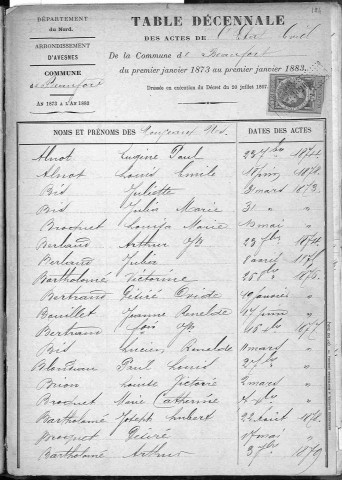 DÉPARTEMENT
du Nord.
ARRONDISSEMENT
D'AVESNES
COMMUNE
de Beaufort
AN 1873 A L'AN 1883
TABLE DÉCENNALE
DES ACTES DE l'Etat Civil
De la Commune de Beaufort
du premier janvier 1873 au premier janvier 1883.
Dressée en exécution du Décret du 20 juillet 1807.
NOMS ET PRÉNOMS DES Nouveaux Nés. DATES DES ACTES
Alnot Eugène Paul 23 7bre 1874.
Alnot Louis Emile 18 juin 1878.
Bis Juliette mars 1873.
Bis Jules Marie 31 "
Broquet Louisa Marie mai "
Berteaud Arthur Jh 23 1874.
Jules 8 avril
Bartholomé Victorine 25 1876.
Bertrand Désiré Ovide 20 janvier "
Bouillet Jeanne Renelde 17 juin "
Bertrand Jh 15 1877.
Bis Lucien Renelde mars "
Blondeau Paul Louis "
Brion Louise Victoire 2 mars "
Broquet Marie Catherine "
Bartholomé Joseph Imbert 22 août 1878.
Broquet Désiré 17 mai "
Bartholomé Arthur 3 1879